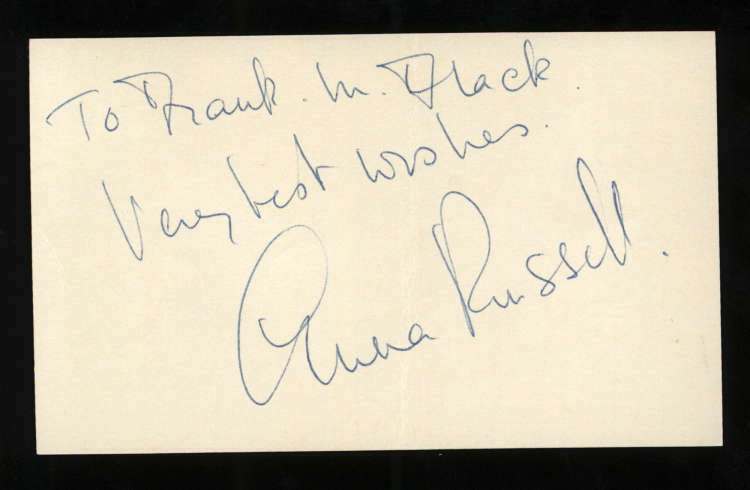 To Frank. M. Flack.
Very best wishes.
Anna Russell.